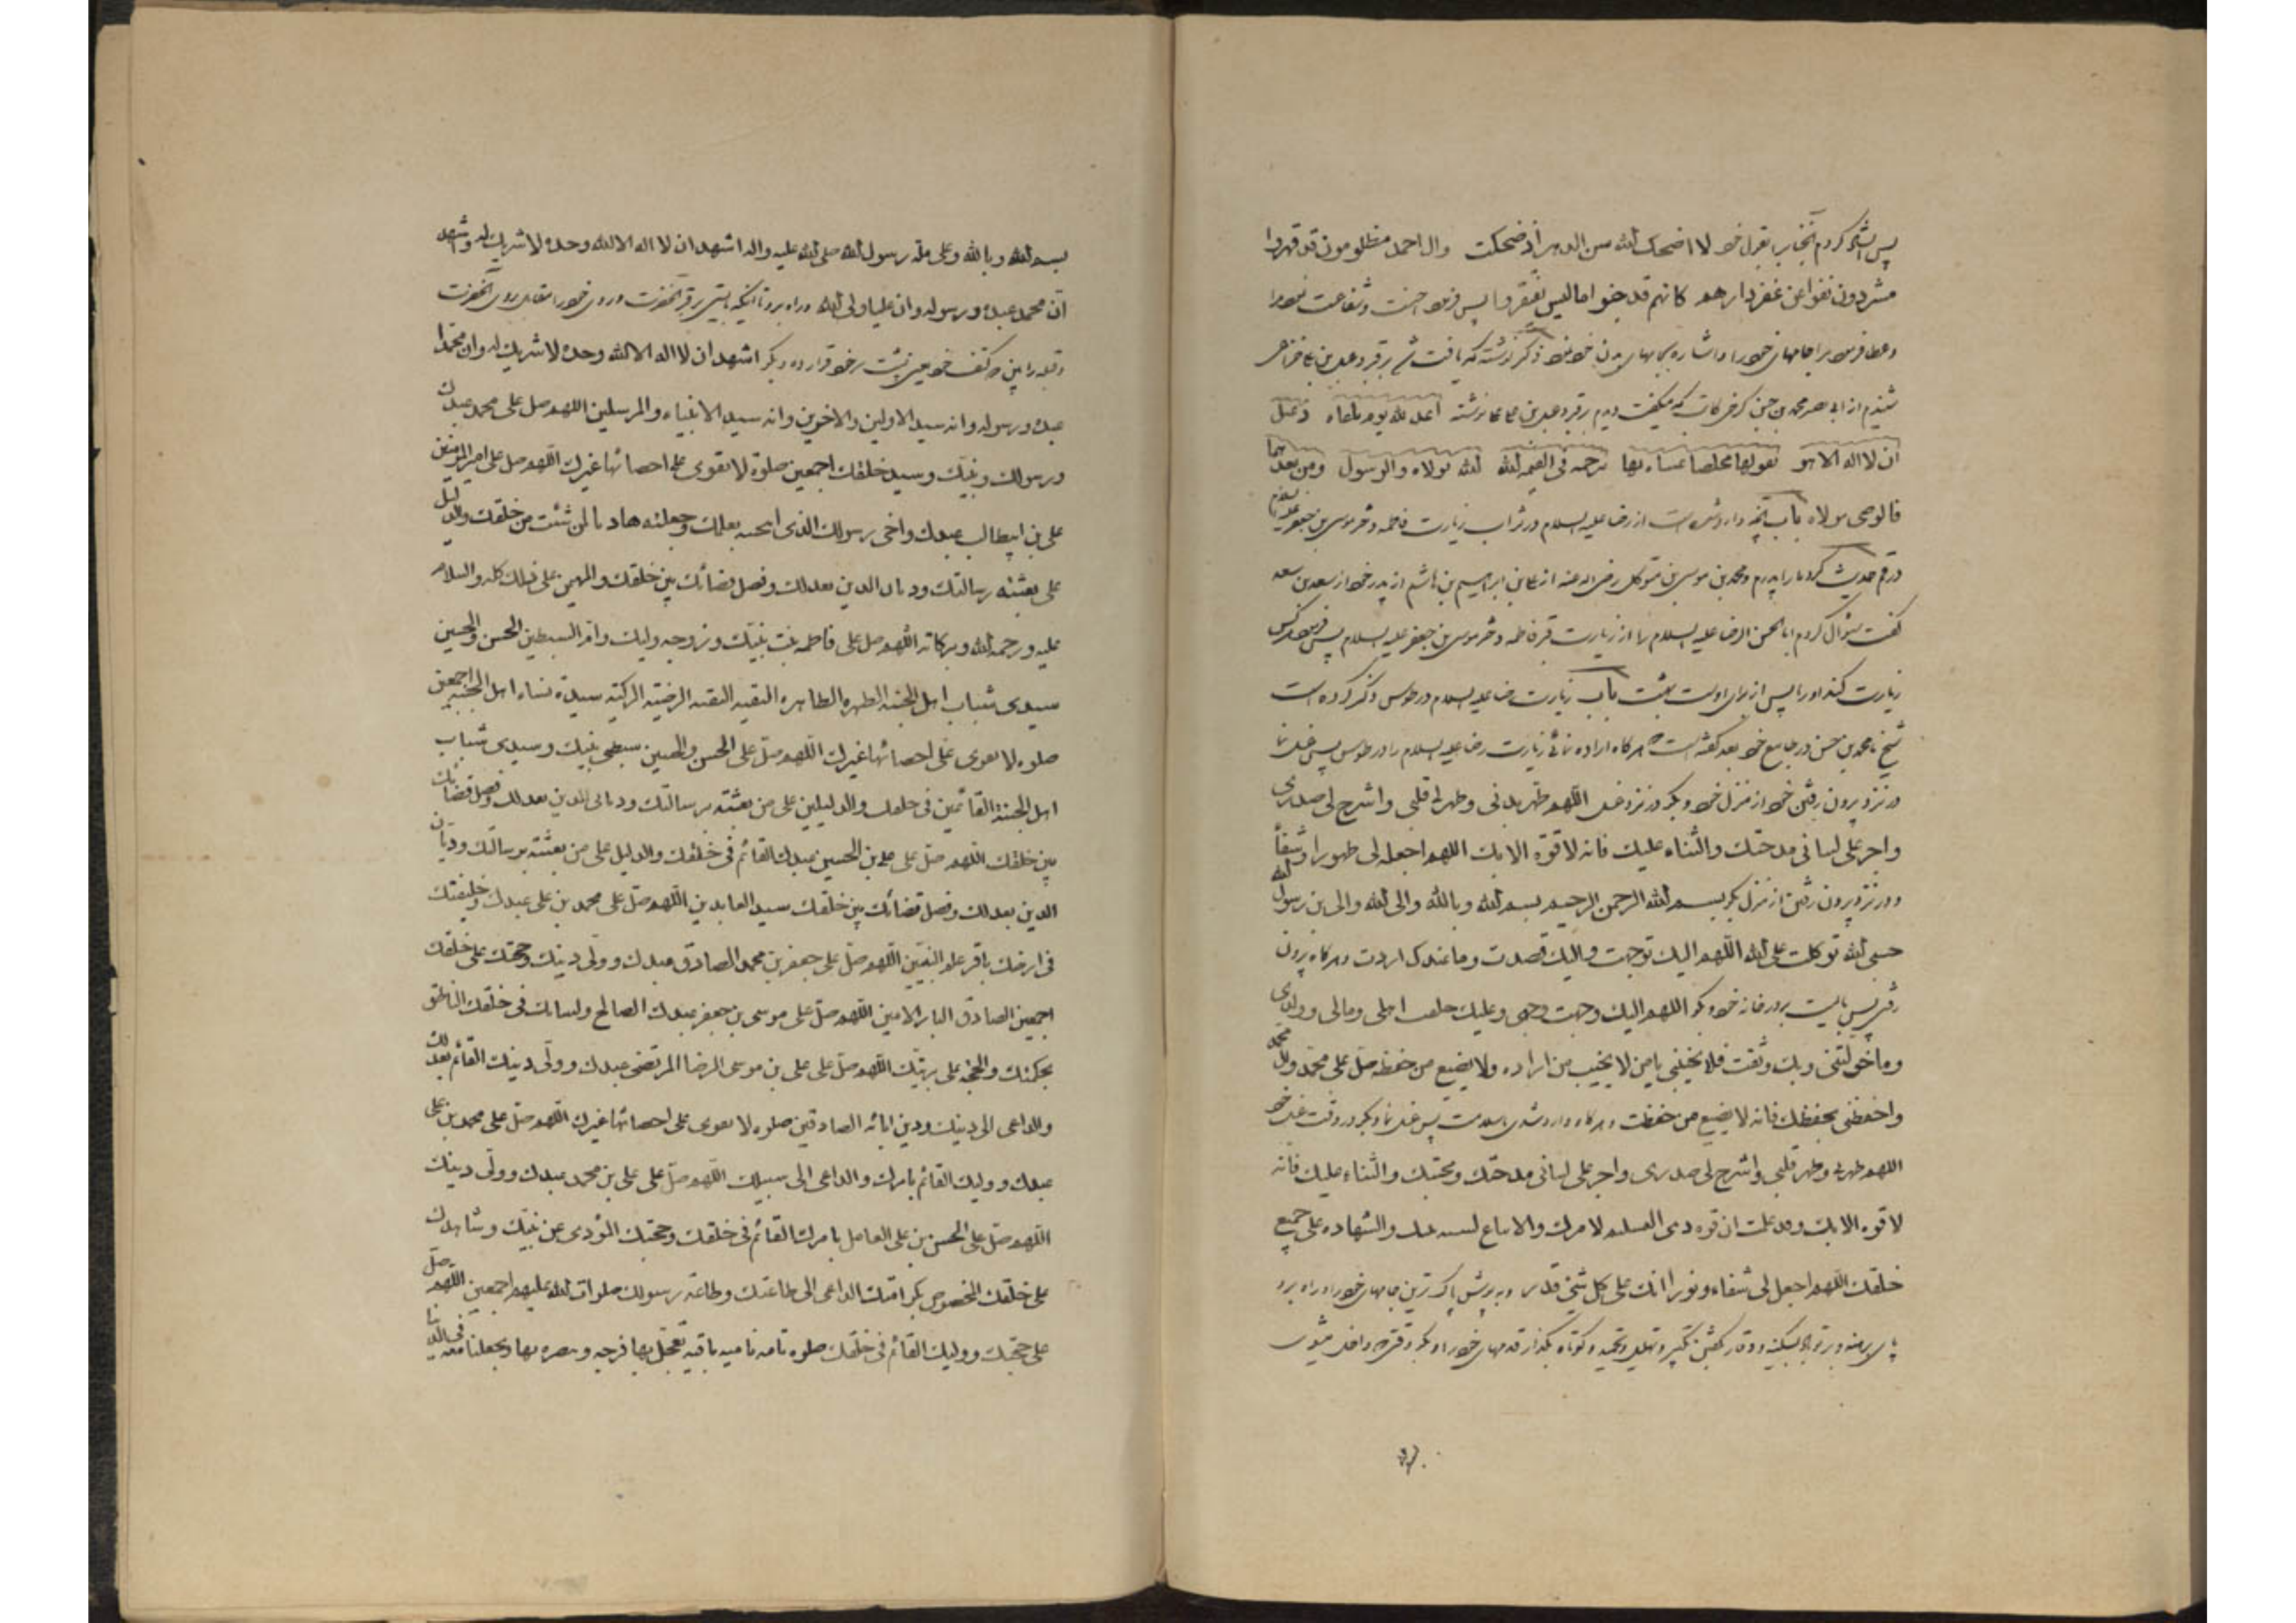 پس انشاد کردم آنجناب را بقول خود لا اضحک الله سن الدهر اذ ضحکت وال احمد مظلومون قد قهروا
مشردون نفوا عن عقر دارهم کانهم قد جنوا ما لیس یغتفر پس فرمود احسنت و شفاعت نمود مرا
و عطا فرمود مرا جامهای خود را و اشاره بجامهای بدن خود نمود ذکر نوشته که یافت شد بر قبر دعبل بن علی خزاعی
شنیدم از ابی نصر محمد بن حسن کرخی کاتب که میگفت دیدم بر قبر دعبل بن علی نوشته اعد لله یوم یلقاه دعبل
ان لا اله الا هو یقولها مخلصا عساه بها یرحمه فی القیمه الله الله مولاه والرسول ومن بعدهما
فالوصی مولاه باب وارد شده است از رضا علیه السلام در ثواب زیارت فاطمه دختر موسی بن جعفر علیه السلام
در قم حدیث کرد ما را پدرم و محمد بن موسی بن متوکل رضی الله عنه از علی بن ابراهیم بن هاشم از پدر خود از سعد بن سعد
گفت سؤال کردم ابا الحسن الرضا علیه السلام را از زیارت قبر فاطمه دختر موسی بن جعفر علیه السلام پس فرمود هر کس
زیارت کند او را پس از برای اوست بهشت باب زیارت رضا علیه السلام در طوس ذکر کرده است
شیخ ما محمد بن حسن در جامع خود بعد گفته است هر کاه اراده نمائی زیارت رضا علیه السلام را در طوس پس غسل نما
در نزد بیرون رفتن خود از منزل خود و بگو در نزد غسل اللهم طهر بدنی وطهر لی قلبی واشرح لی صدری
واجر علی لسانی مدحتک والثناء علیک فانه لا قوة الا بک اللهم اجعله لی طهورا وشفاء
و در نزد بیرون رفتن از منزل بگو بسم الله الرحمن الرحیم بسم الله وبالله والی الله والی بن رسول الله
حسبی الله توکلت علی الله اللهم الیک توجهت والیک قصدت وما عندک اردت و هر کاه بیرون
رفتی پس بایست بر در خانه خود و بگو اللهم الیک وجهت وجهی وعلیک خلفت اهلی ومالی وولدی
وما خولتنی وبک وثقت فلا تخیبنی یا من لا یخیب من اراده ولا یضیع من حفظه صل علی محمد وال محمد
واحفظنی بحفظک فانه لا یضیع من حفظت و هر کاه وارد شدی بسلامت پس غسل نما و بگو در وقت غسل خود
اللهم طهرنی وطهر قلبی واشرح لی صدری واجر علی لسانی مدحتک ومحبتک والثناء علیک فانه
لا قوه الا بک وقد علمت ان قوه دینی التسلیم لامرک والاتباع لسنه نبیک والشهاده علی جمیع
خلقک اللهم اجعل لی شفاء ونورا انک علی کل شئ قدیر و بپوش پاک ترین جامهای خود را و راه برو
پای برهنه و بر تو باد بسکینه و وقار گفتن تکبیر و تهلیل و تحمید و کوتاه بگذار قدمهای خود را و بگو وقتی که داخل میشوی
بسم الله وبالله وعلی ملة رسول الله صلی الله علیه واله اشهد ان لا اله الا الله وحده لا شریک له واشهد
ان محمدا عبده ورسوله وان علیا ولی الله و راه برو تا اینکه بایستی بر قبر آنحضرت و روی خود را مقابل روی آنحضرت
و قبله را بین دو کتف خود یعنی پشت سر خود قرار ده و بگو اشهد ان لا اله الا الله وحده لا شریک له وان محمدا
عبده ورسوله وانه سید الاولین والاخرین وانه سید الانبیاء والمرسلین اللهم صل علی محمد عبدک
ورسولک ونبیک وسید خلقک اجمعین صلوة لا یقوی علی احصائها غیرک اللهم صل علی امیر المؤمنین
علی بن ابیطالب عبدک واخی رسولک الذی انتجبته بعلمک وجعلته هادیا لمن شئت من خلقک والدلیل
علی بعثته برسالتک ودیان الدین بعدلک وفصل قضائک بین خلقک والمهیمن علی ذلک کله والسلام
علیه ورحمه الله وبرکاته اللهم صل علی فاطمه بنت نبیک وزوجه ولیک وام السبطین الحسن والحسین
سیدی شباب اهل الجنه الطهره الطاهره التقیه النقیه الرضیه الزکیه سیدة نساء اهل الجنه اجمعین
صلوه لا یقوی علی احصائها غیرک اللهم صل علی الحسن والحسین سبطی نبیک وسیدی شباب
اهل الجنة القائمین فی خلقک والدلیلین علی من بعثته برسالتک ودیانی الدین بعدلک وفصل قضائک
بین خلقک اللهم صل علی علی بن الحسین عبدک القائم فی خلقک والدلیل علی من بعثته برسالتک ودیان
الدین بعدلک وفصل قضائک بین خلقک سید العابدین اللهم صل علی محمد بن علی عبدک وخلیفتک
فی ارضک باقر علم النبیین اللهم صل علی جعفر بن محمد الصادق عبدک وولی دینک وحجتک علی خلقک
اجمعین الصادق البار الامین اللهم صل علی موسی بن جعفر عبدک الصالح ولسانک فی خلقک الناطق
بحکمتک والحجه علی بریتک اللهم صل علی علی بن موسی الرضا المرتضی عبدک وولی دینک القائم بعدلک
والداعی الی دینک ودین ابائه الصادقین صلوه لا یقوی علی احصائها غیرک اللهم صل علی محمد بن علی
عبدک وولیک القائم بامرک والداعی الی سبیلک اللهم صل علی علی بن محمد عبدک وولی دینک
اللهم صل علی الحسن بن علی العامل بامرک القائم فی خلقک وحجتک المؤدی عن نبیک وشاهدک
علی خلقک المخصوص بکرامتک الداعی الی طاعتک وطاعة رسولک صلوات الله علیهم اجمعین اللهم صل
علی حجتک وولیک القائم فی خلقک صلوه تامه نامیه باقیه تعجل بها فرجه وتنصره بها وتجعلنا معه فی الدنیا